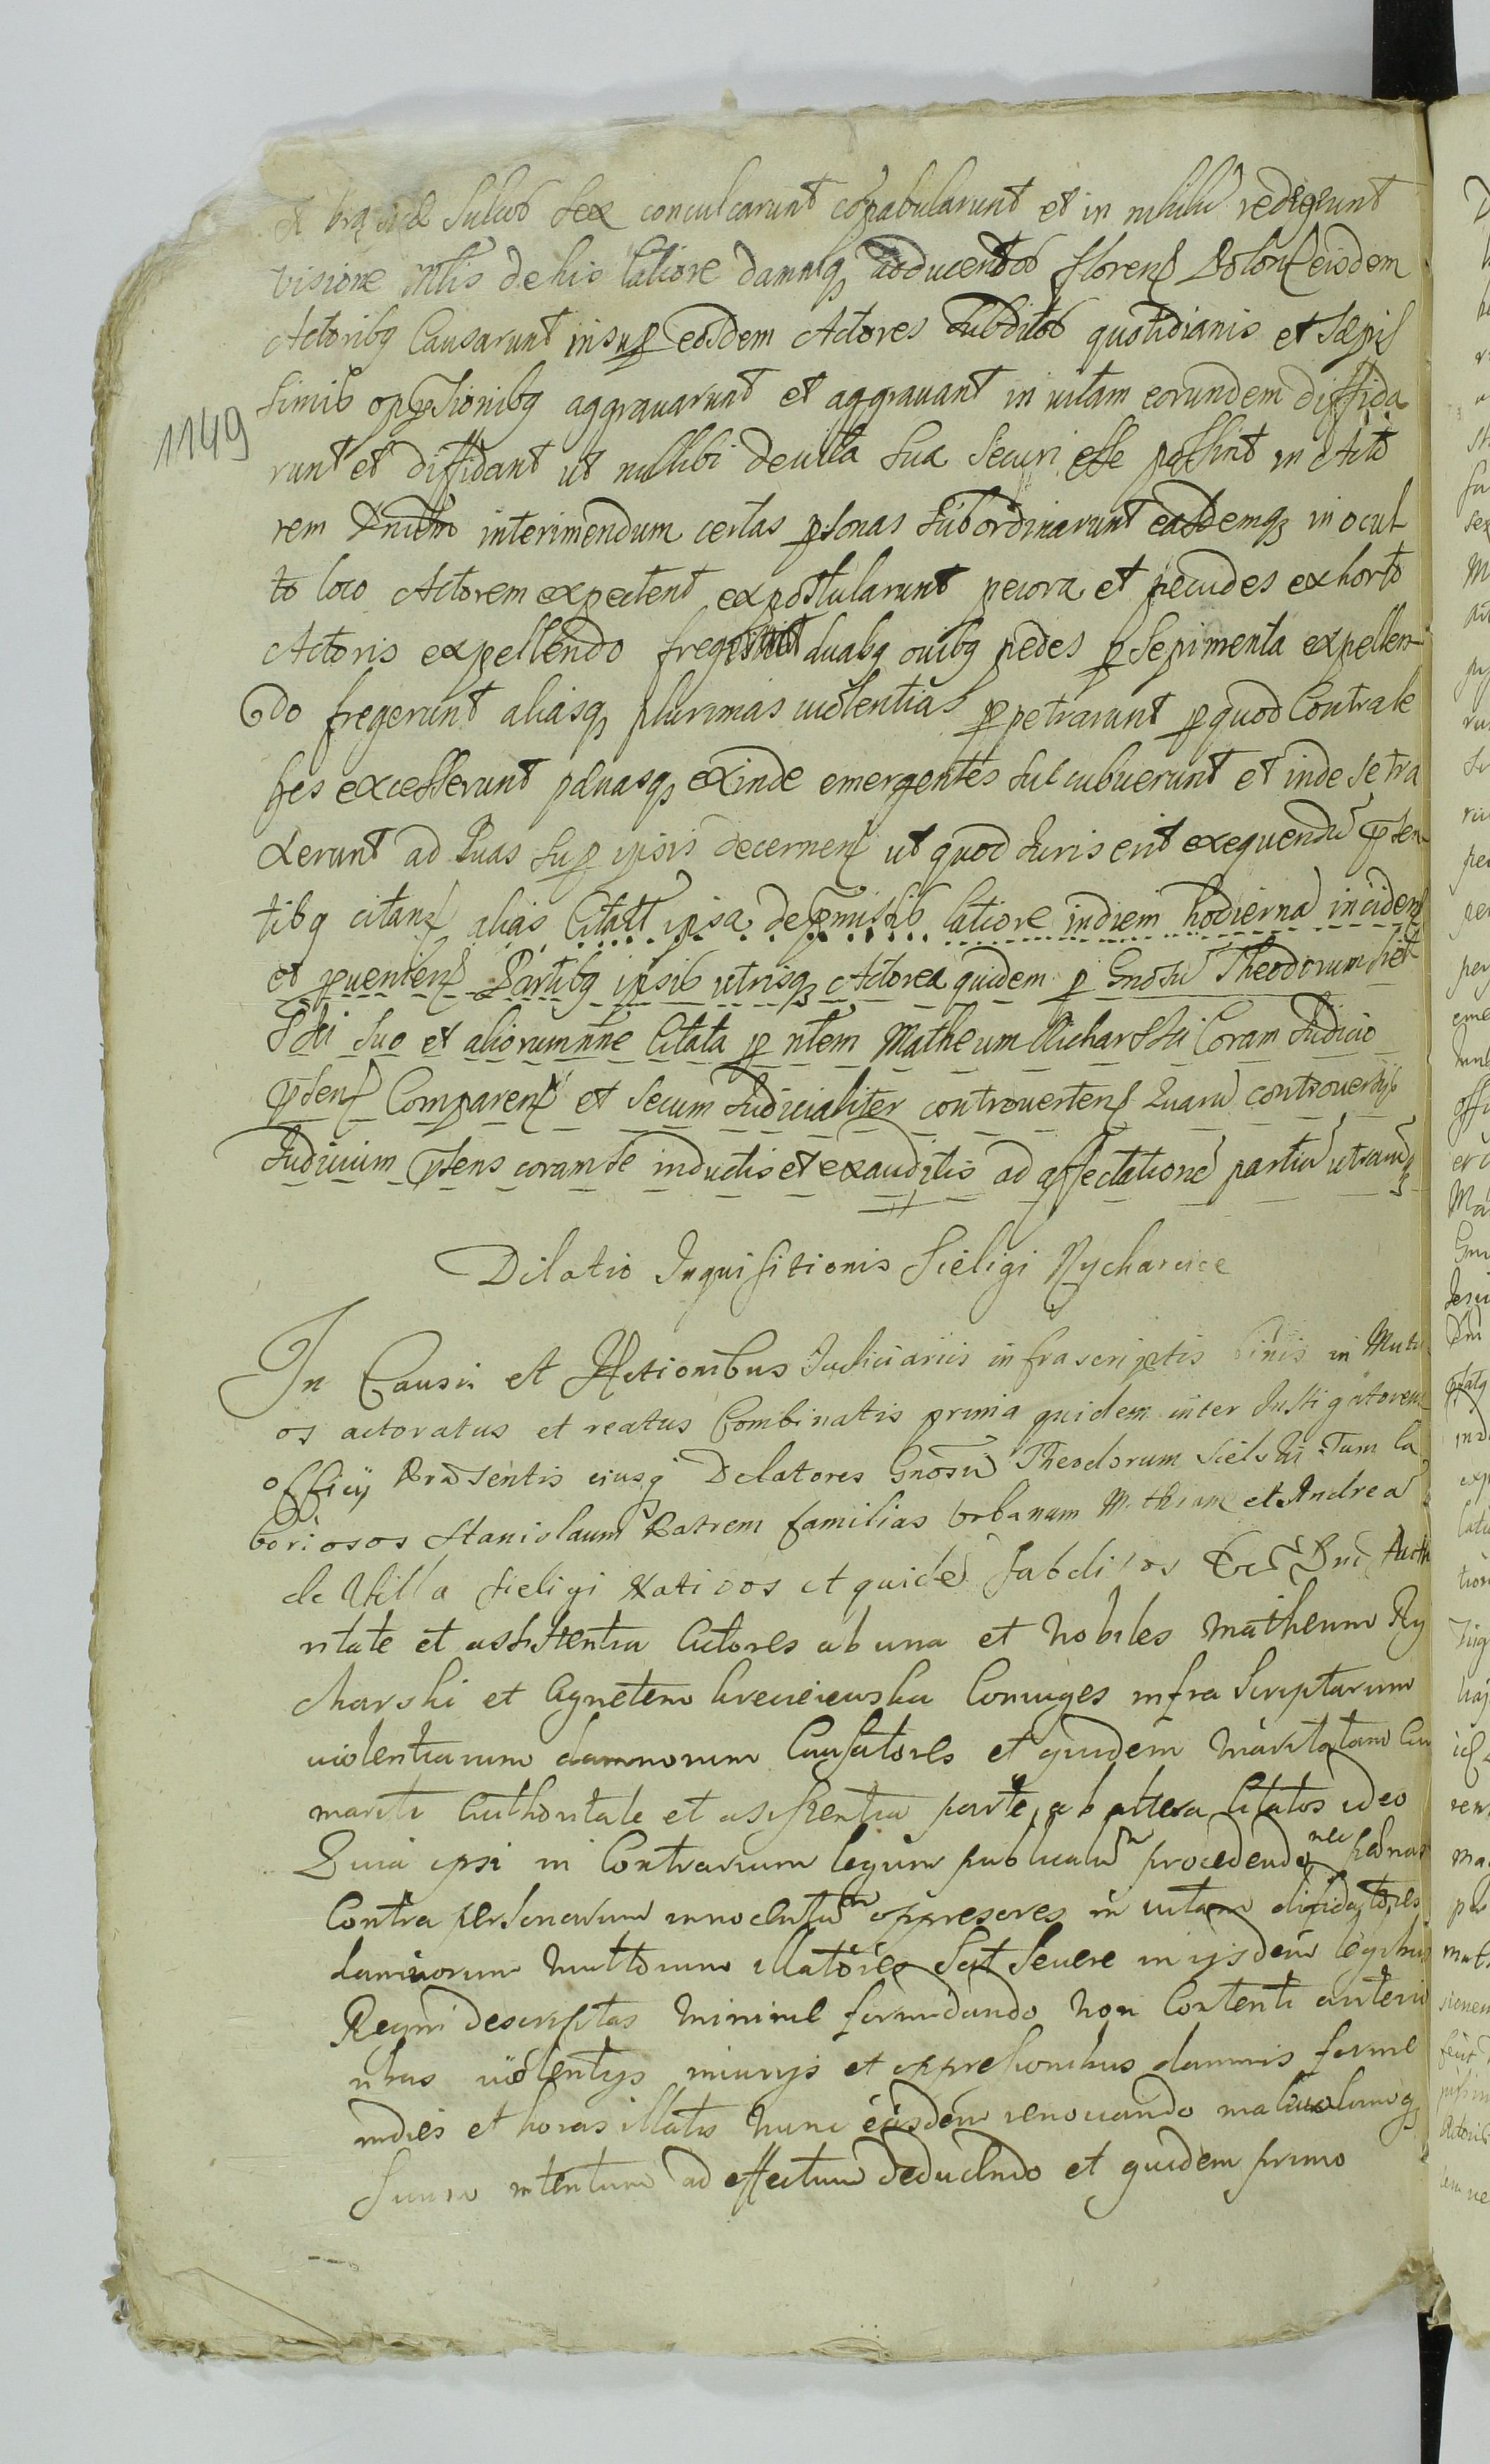 conculcarunt copabularunt et in nihilu redigerunt
visione Mlis de his latiore damnaq, ad ducentos floren Polon eisdem
Actoribq Causarunt insup eosdem Actores Subditos quotidianis et Sæpis
simis oppssionibq aggravarunt et aggravant in vitam eorundem diffida
runt et diffidant ut nullibi de vita sua Securi esse possint in Acto
rem interimendum certas psonas Subordinarunt easdemq in ocul
to loco Actorem expectent expostularunt pecora et pecudes ex horto
Actoris expellendo fregerunt duabq ovibq pedes p Sepimenta expellen
do fregerunt aliasq plurimas violentias ppetrarunt p quod Contra le
ges excesserunt pœnasq exinde emergentes succubuerunt et inde se tra
xerunt ad quas sup ipsis decernen ut quod Juris erit exequendu psen
tibq citan alias Citatt ipsa de pmissis latiore in diem hodierna inciden
et pvenien Partibq ipsis utrisq Actorea quidem p Gnosu Theodorum Siel
Ski suo et aliorum nne Citata p nlem Matheum Richarski Coram Judicio
psen Comparen et Secum Judicialiter controverten Quaru controversys
Judicium psens coram se inductis et exauditis ad affectatione partiu utraru
Dilatio Inquisitionis Sieligi Rycharcice
In Causis et Actionibus Judiciariis infrascriptis binis in Mutu
os actoratus et reatus Combinatis prima quidem inter Instigatorem
officij Præsentis eiusq Delatores Gnosu Theodorum Sielski Tum la
boriosos Stanislaum Patrem familias Urbanum Mathiam et Andrea
de Villa Sieligi Nativos et quide Subditos Dni Auth
ritate et assistentia Actores ab una et Nobiles Matheum Ry
charski et Agnetem Coniuges infra Scriptarum
violentiarum damnorum Causatores et quidem Maritatam Cu
mariti Authoritate et assistentia parte ab altera Citatos ideo
Quia ipsi in Contrarium legum publicatu procedendo nec pœnas
Contra personarum innocentu oppresores in vitam difidatores
damnorum multorum illatores Sat Severe in ijsdem legibus
Regni descriptas minime formidando non Contenti anterio
ribus violentijs iniurijs et oppresionibus damnis ferme
indies et horas illatis Nunc easdem renovando malivolumq
Suum intentum ad effectum deducendo et quidem primo
1149